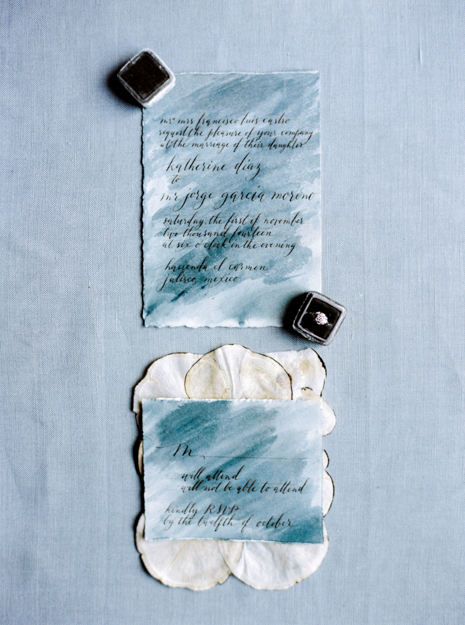 mr & mrs francisco luis castro
request the pleasure of your company
at the marriage of their daughter
katherine diaz
to
mr jorge garcia moreno
saturday, the first of november
two thousand fourteen
at six o'clock in the evening
hacienda el carmen
jalisco, mexico
M
will attend
will not be able to attend
kindly RSVP
by the twelfth of october